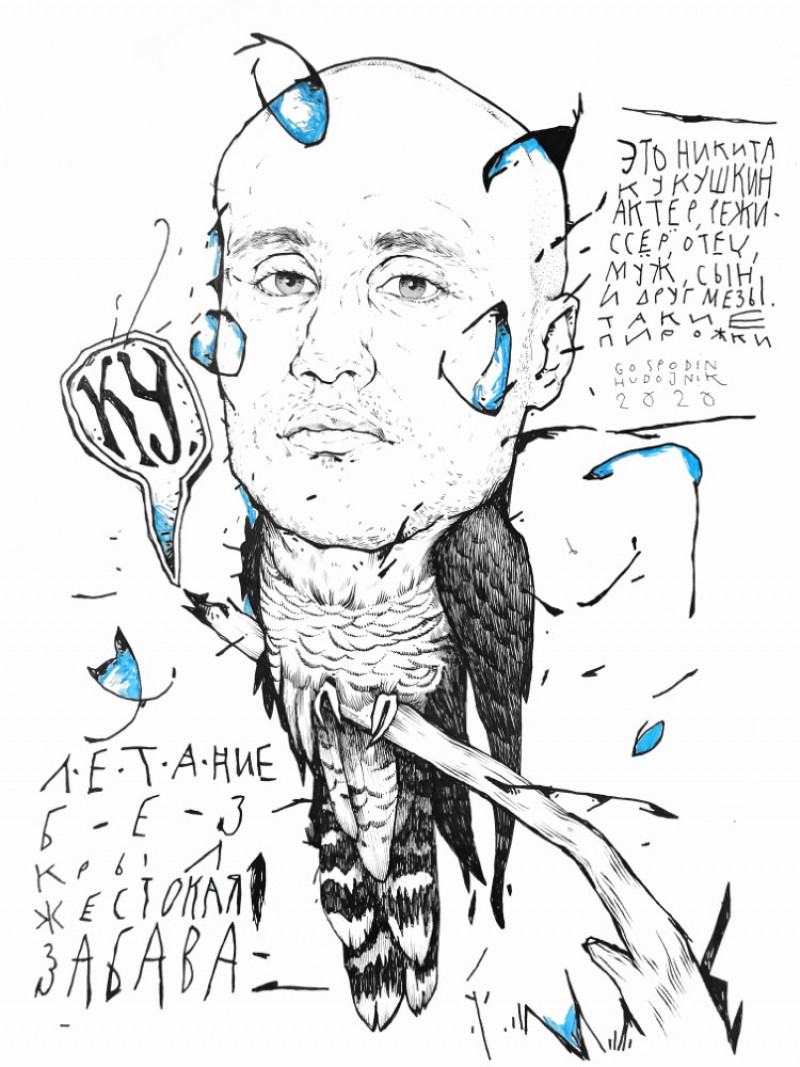 ЭТО НИКИТА
КУКУШКИН
АКТЕР, РЕЖИ-
ССЁР, ОТЕЦ,
МУЖ, СЫН,
И ДРУГ МЕЗЫ.
ТАКИЕ
ПИРОЖКИ
GOSPODIN
HUDOJNIK
2020
КУ
Л·Е·Т·А·НИЕ
Б - Е - З
КРЫЛ
ЖЕСТОКАЯ
ЗАБАВА-